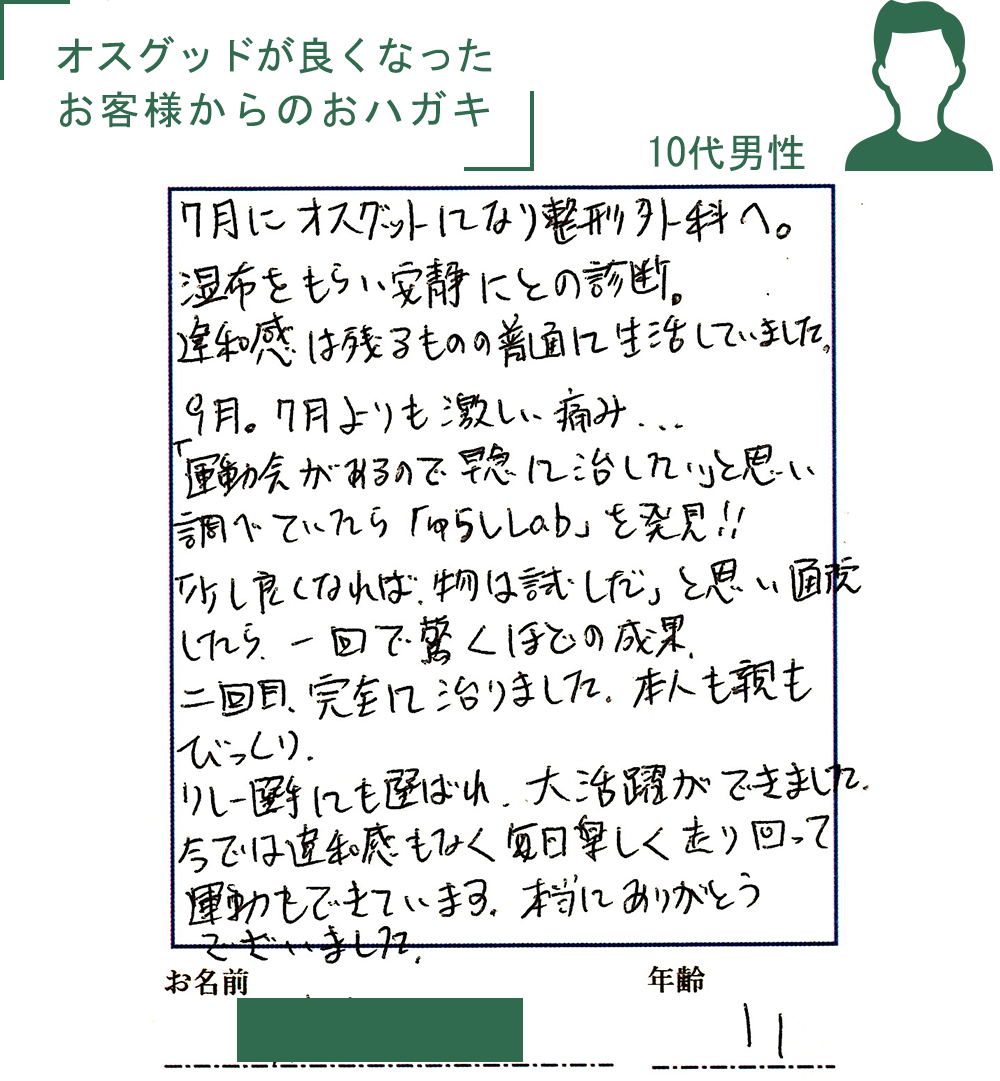 オスグッドが良くなった
お客様からのおハガキ
10代男性
7月にオスグットになり整形外科へ。
湿布をもらい安静にとの診断。
違和感は残るものの普通に生活していました。
9月。7月よりも激しい痛み...
「運動会があるので早急に治したい」と思い
調べていたら「ゆらしLab」を発見!!
「少し良くなれば、物は試しだ」と思い通院
したら、一回で驚くほどの成果。
二回目、完全に治りました。本人も親も
びっくり。
リレー選手にも選ばれ、大活躍ができました。
今では違和感もなく毎日楽しく走り回って
運動もできています。本当にありがとう
ございました。
お名前
年齢
11